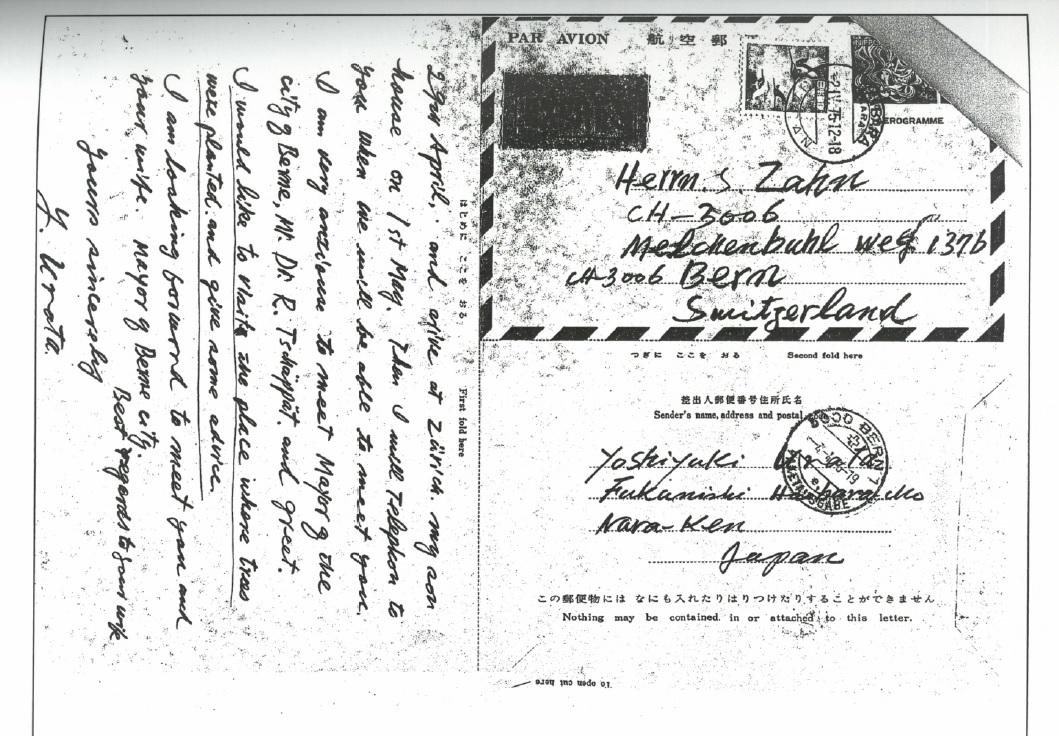 PAR AVION 航空郵
AEROGRAMME
Herrn. S. Zahn
CH-3006
Melchenbuhl weg 137b
CH-3006 Bern
Switzerland
つぎに ここを おる Second fold here
差出人郵便番号住所氏名
Sender's name, address and postal code
3000 BERN 1
Yoshiyuki
Fukanishi
Nara-Ken
Japan
この郵便物には なにも入れたりはりつけたりすることができません
Nothing may be contained in or attached to this letter.
To open cut here
はじめに ここを おる First fold here
27th April, and arive at Zürich. my son
house on 1st May. Then I will telephon to
you when we will be able to meet you.
I am very anxiouse to meet Mayor of the
city of Berne, Mr. Dr. R. Tschäppät. and greet.
I would like to visite the place where trees
were planted. and give some advice.
I am looking forword to meet you and
your wife. Mayor of Berne city.
Best regards to your wife
Yours sincerely
Y. Urata.